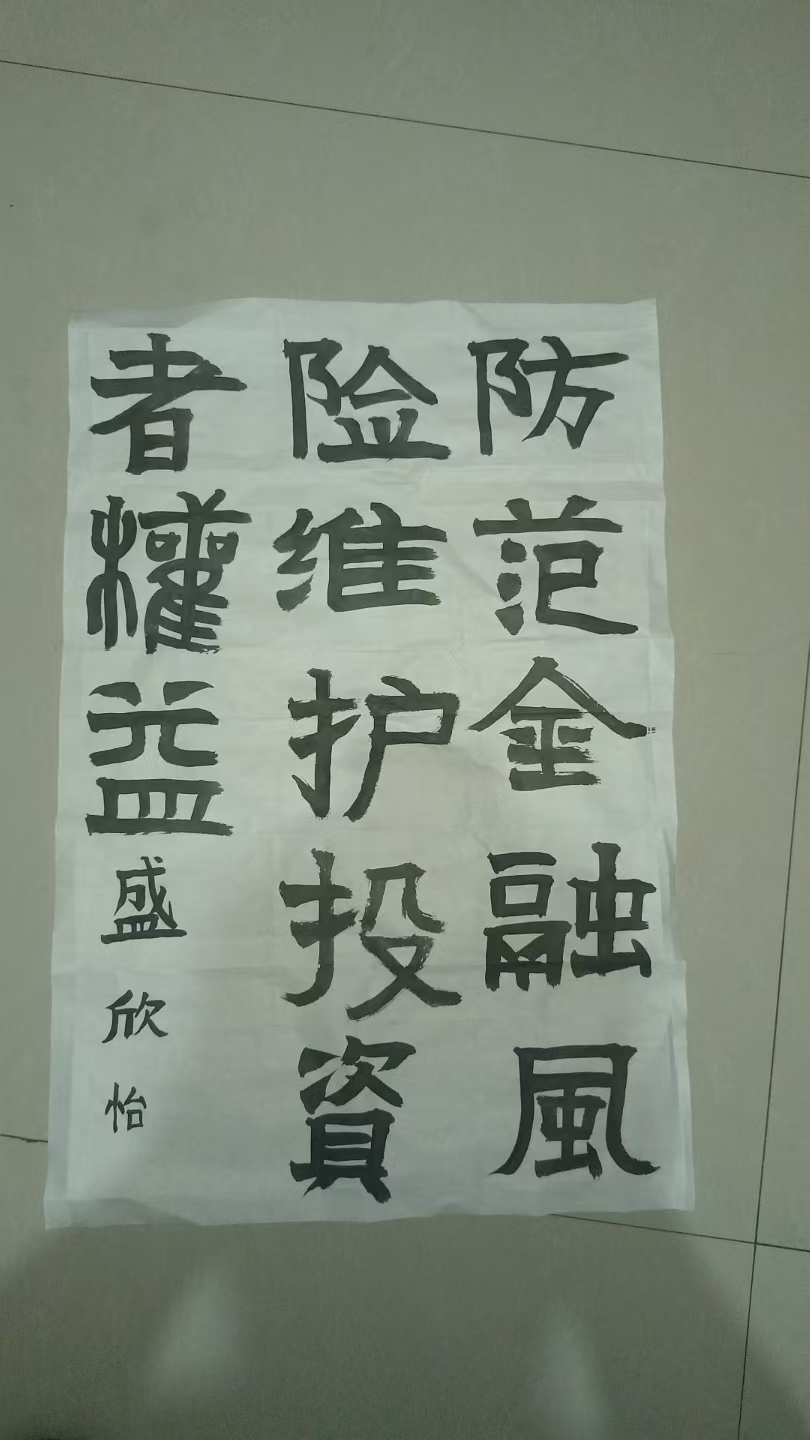 防范金融風
险维护投資
者權益盛欣怡